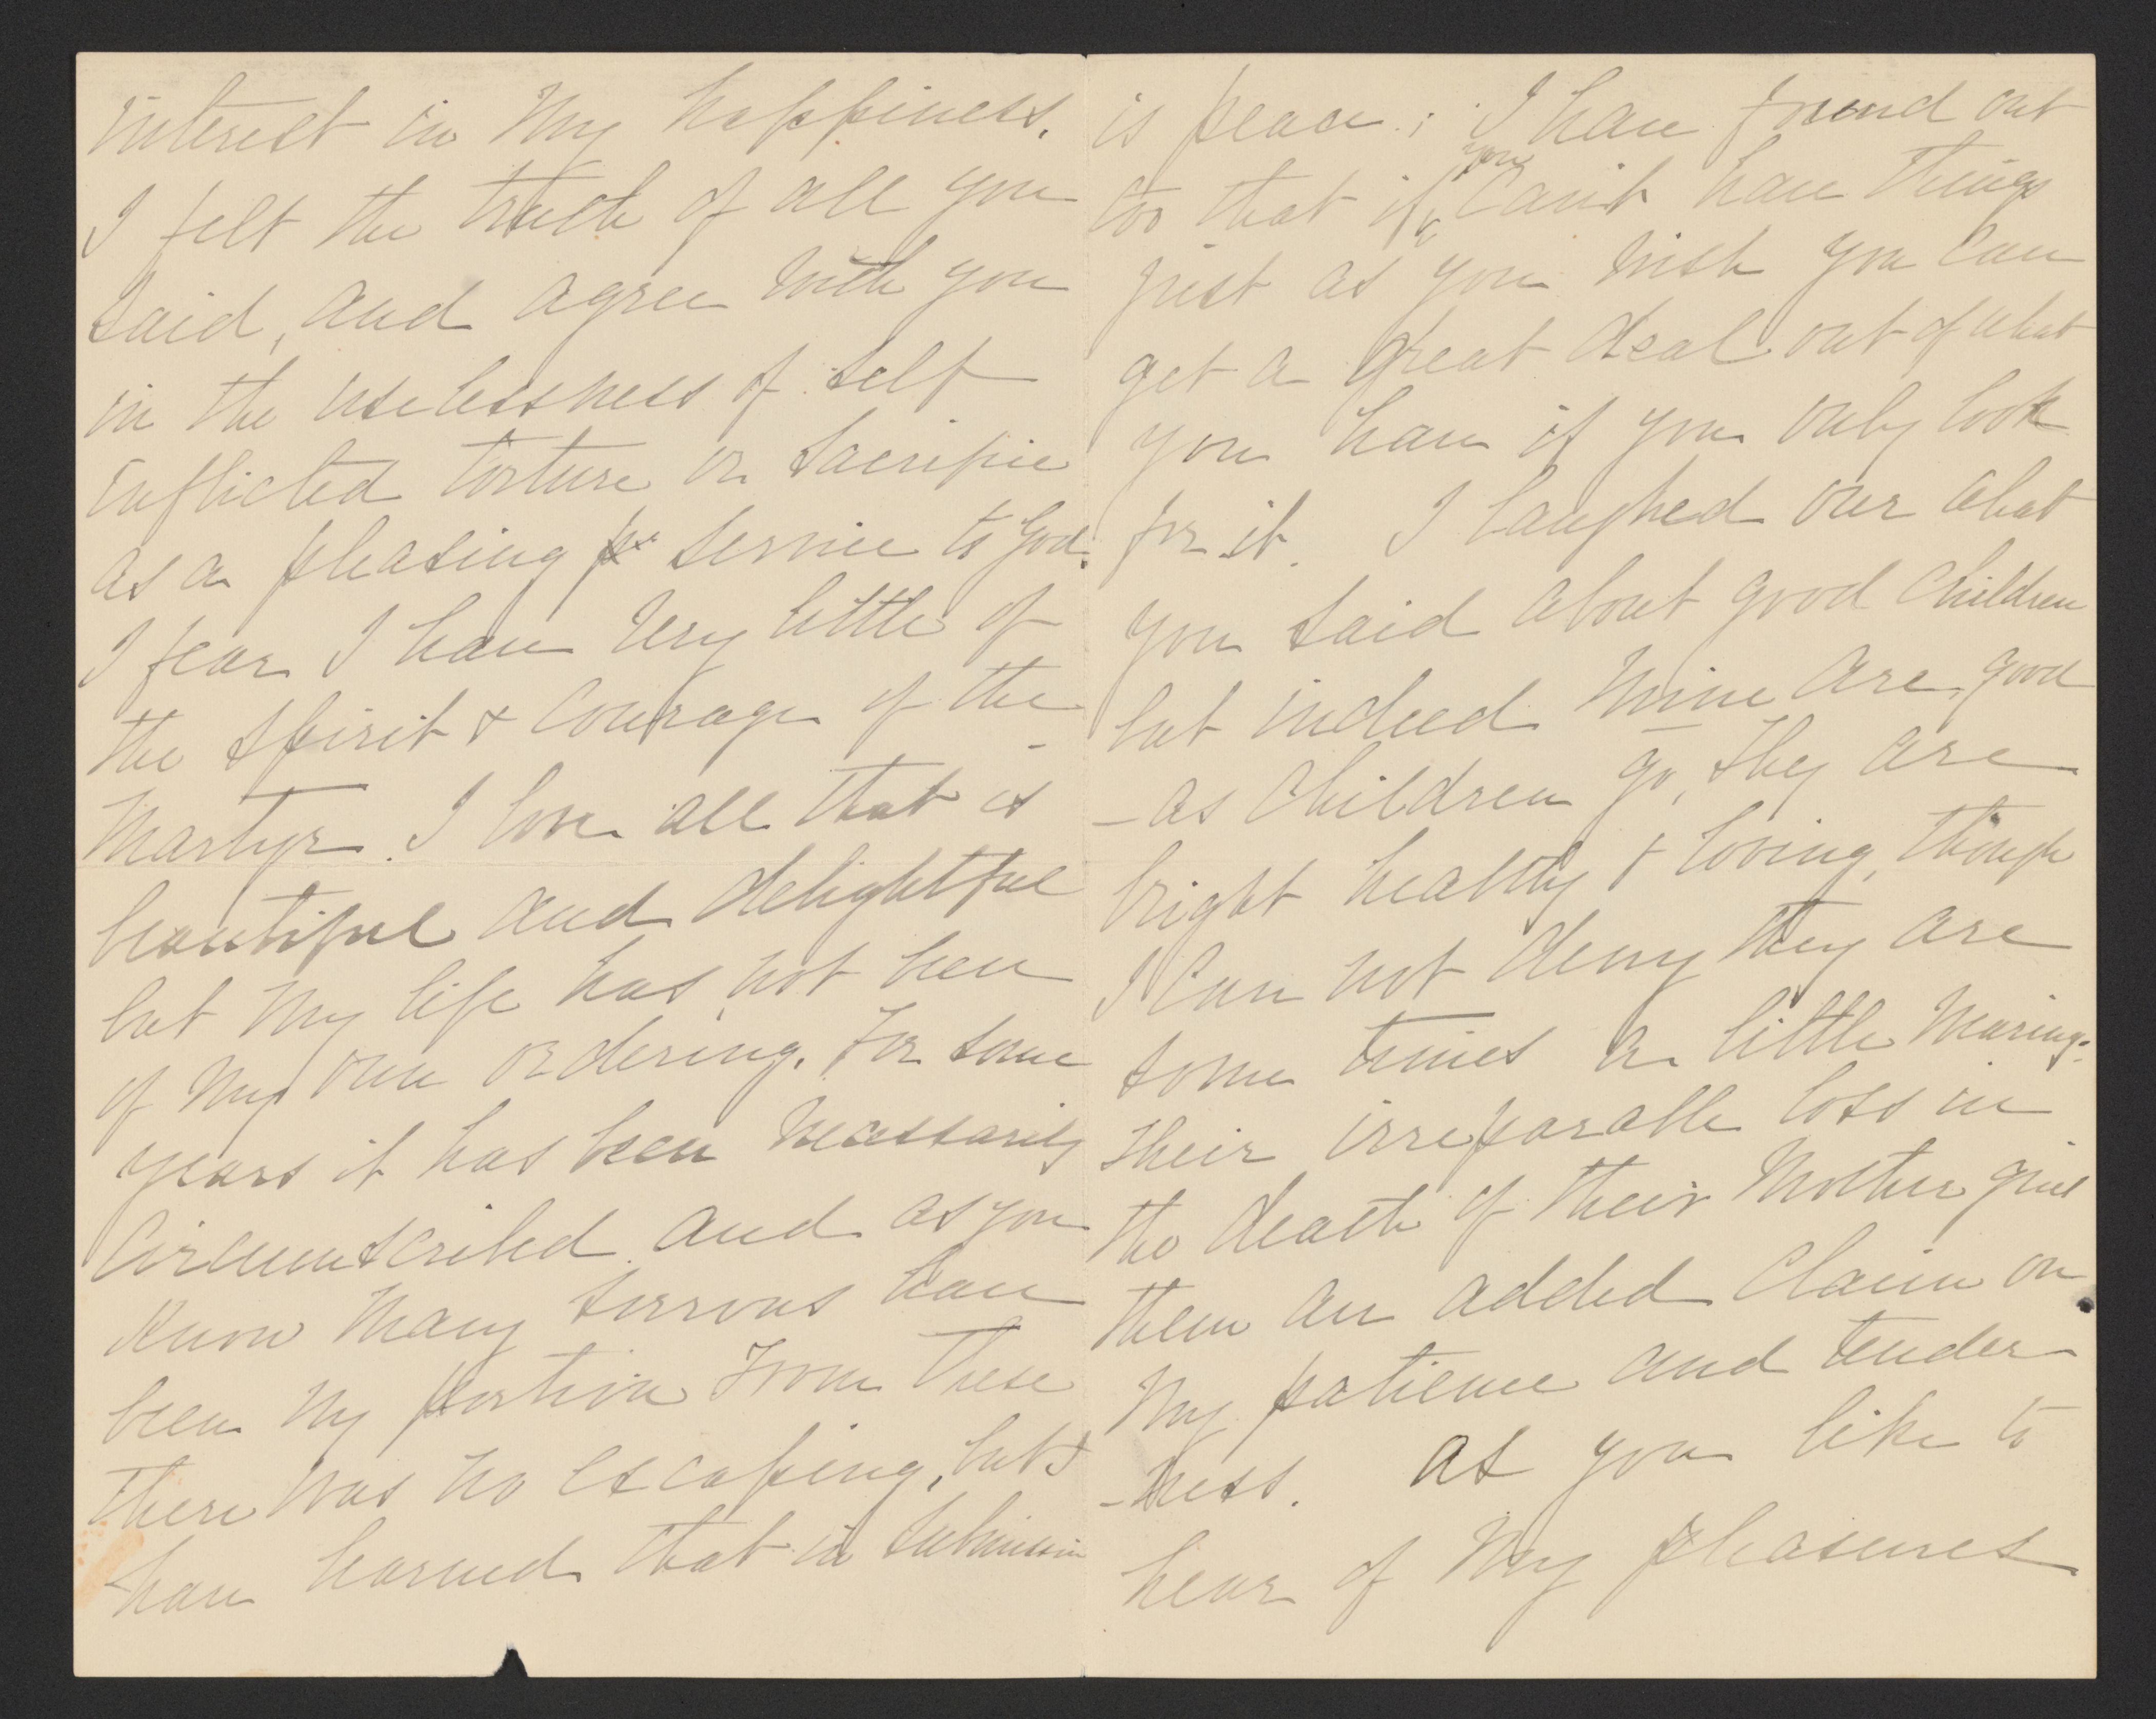 interest in my happiness.
I felt the truth of all you
said, and agree with you
in the uselessness of self
inflicted torture or sacrifice
as a pleasing service to God.
I fear I have very little of
the spirit & courage of the
Martyr. I love all that is
beautiful and delightful
but my life has not been
of my own ordering. For some
years it has been necessarily
circumscribed and as you
know many sorrows have
been my portion From these
there was no escaping, but I
have learned that in submission
is peace; I have found out
too that if you can't have things
just as you wish you can
get a great deal out of what
you have if you only look
for it. I laughed over what
you said about good children
but indeed mine are good
– as children go, they are
bright healthy & loving, though
I can not deny they are
some times a little wearing.
their irreparable loss in
the death of their Mother give
them an added claim on
my patience and tender
-ness. As you like to
hear of my pleasures